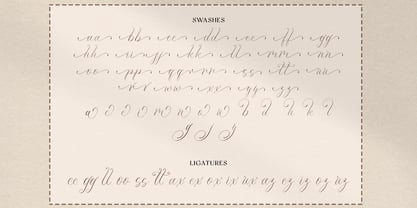 SWASHES
aa bb cc dd ee ff gg
hh ii jj kk ll mm nn
oo pp qq rr ss tt uu
vv ww xx yy zz
LIGATURES
ee gg ll oo ss tt ax ex ox ix ux az ez iz oz uz